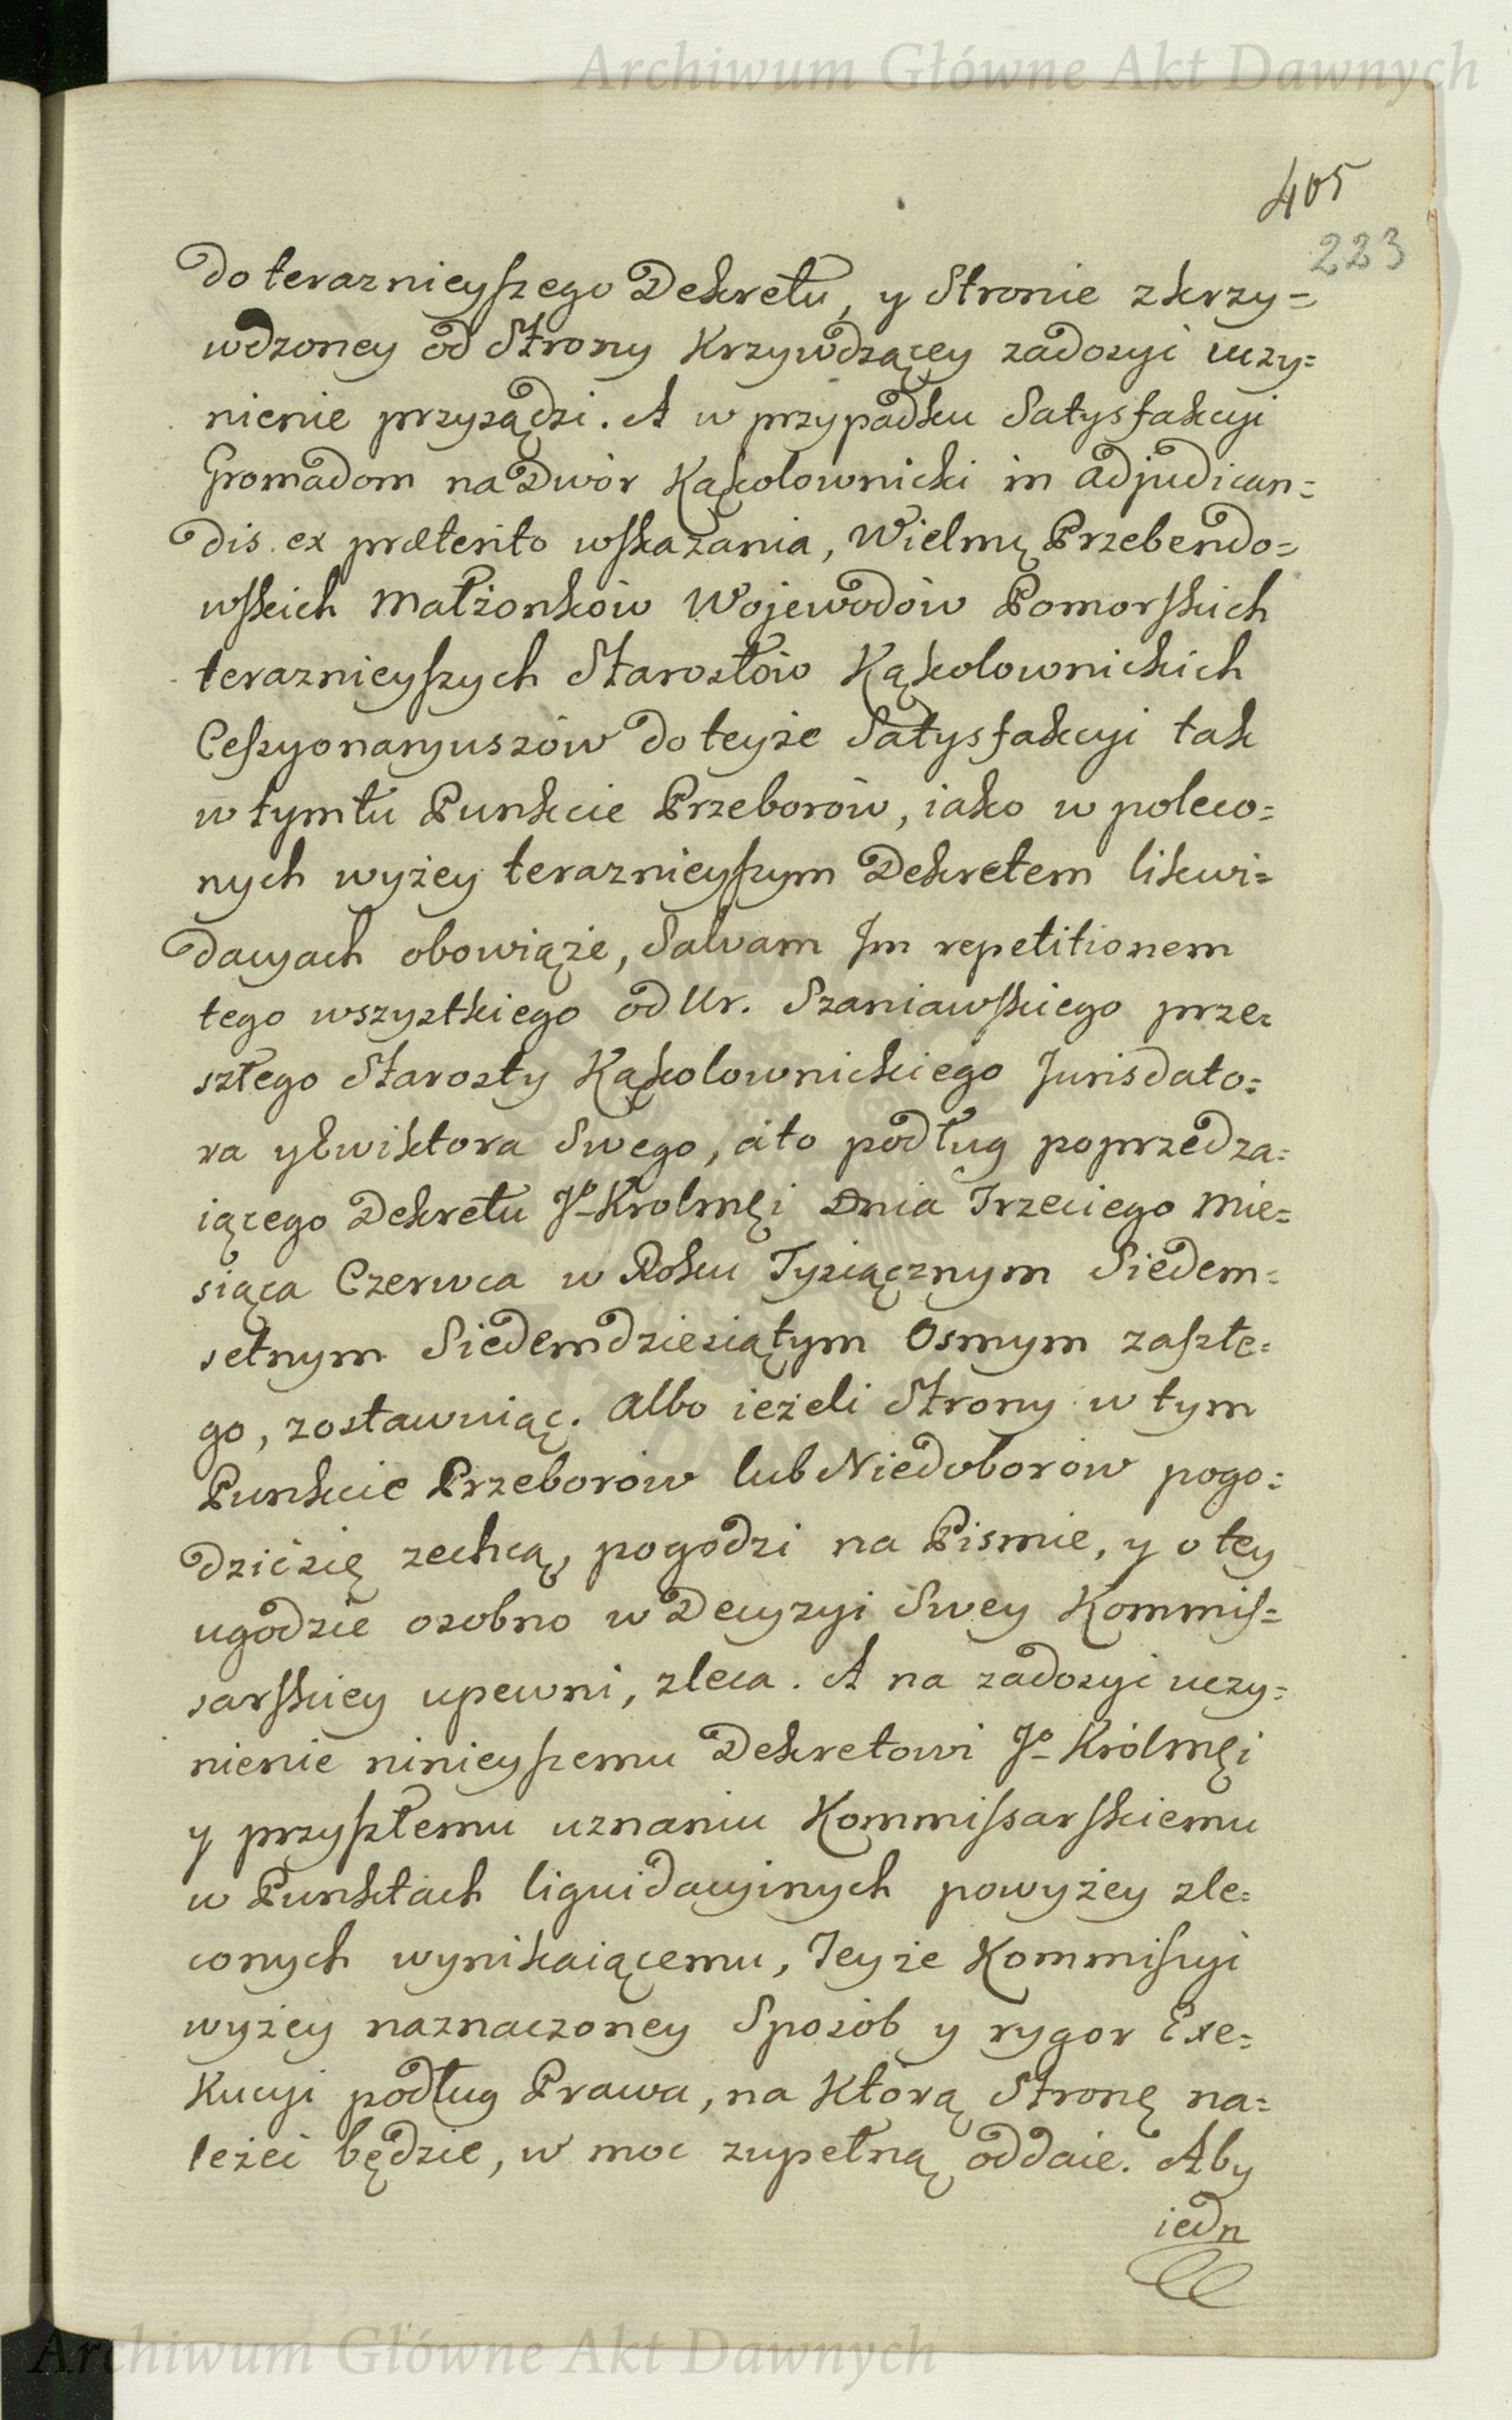 Archiwum Główne Akt Dawnych
405
223
do teraznieyszego Dekretu, y Stronie zkrzy=
wdzoney od Strony Krzywdzącey zadosyi uczy=
nienie przysądzi. A w przypadku Satysfakcyi
Gromadom na Dwór Kąkolownicki in adjudican=
dis ex præterito wskazania, Wielmę Przebendo=
wskich Małżonków Wojewodów Pomorskich
teraznieyszych Starostów Kąkolownickich
Cessyonaryuszów do teyże Satysfakcyi tak
w tymtu Punkcie Przeborów, iako w poleco=
nych wyżey teraznieyszym Dekretem likwi=
dacyach obowiąże, Salvam Im repetitionem
tego wszystkiego od Ur. Szaniawskiego prze=
szłego Starosty Kąkolownickiego Jurisdato=
ra y Ewiktora Swego, a to podług poprzedza=
iącego Dekretu Jo Krolmęi Dnia Trzeciego Mie=
siąca Czerwca w Roku Tysiącznym Siedem=
setnym Siedemdziesiątym Osmym zaszłe=
go, zostawuiąc. Albo ieżeli Strony w tym
Punkcie Przeborów lub Niedoborów pogo=
dzić się zechcą, pogodzi na Pismie, y o tey
ugodzie osobno w Decyzyi Swey Kommis=
sarskiey upewni, zleca. A na zadosyć uczy=
nienie ninieyszemu Dekretowi Jo Królmęi
y przyszłemu uznaniu Kommissarskiemu
w Punktach liquidacyinych powyżey zle=
conych wynikaiącemu, Teyże Kommissyi
wyżey naznaczoney Sposób y rygor Exe=
kucyi podług Prawa, na którą Stronę na=
leżeć będzie, w moc zupełną oddaie. Aby
iedn
Archiwum Główne Akt Dawnych